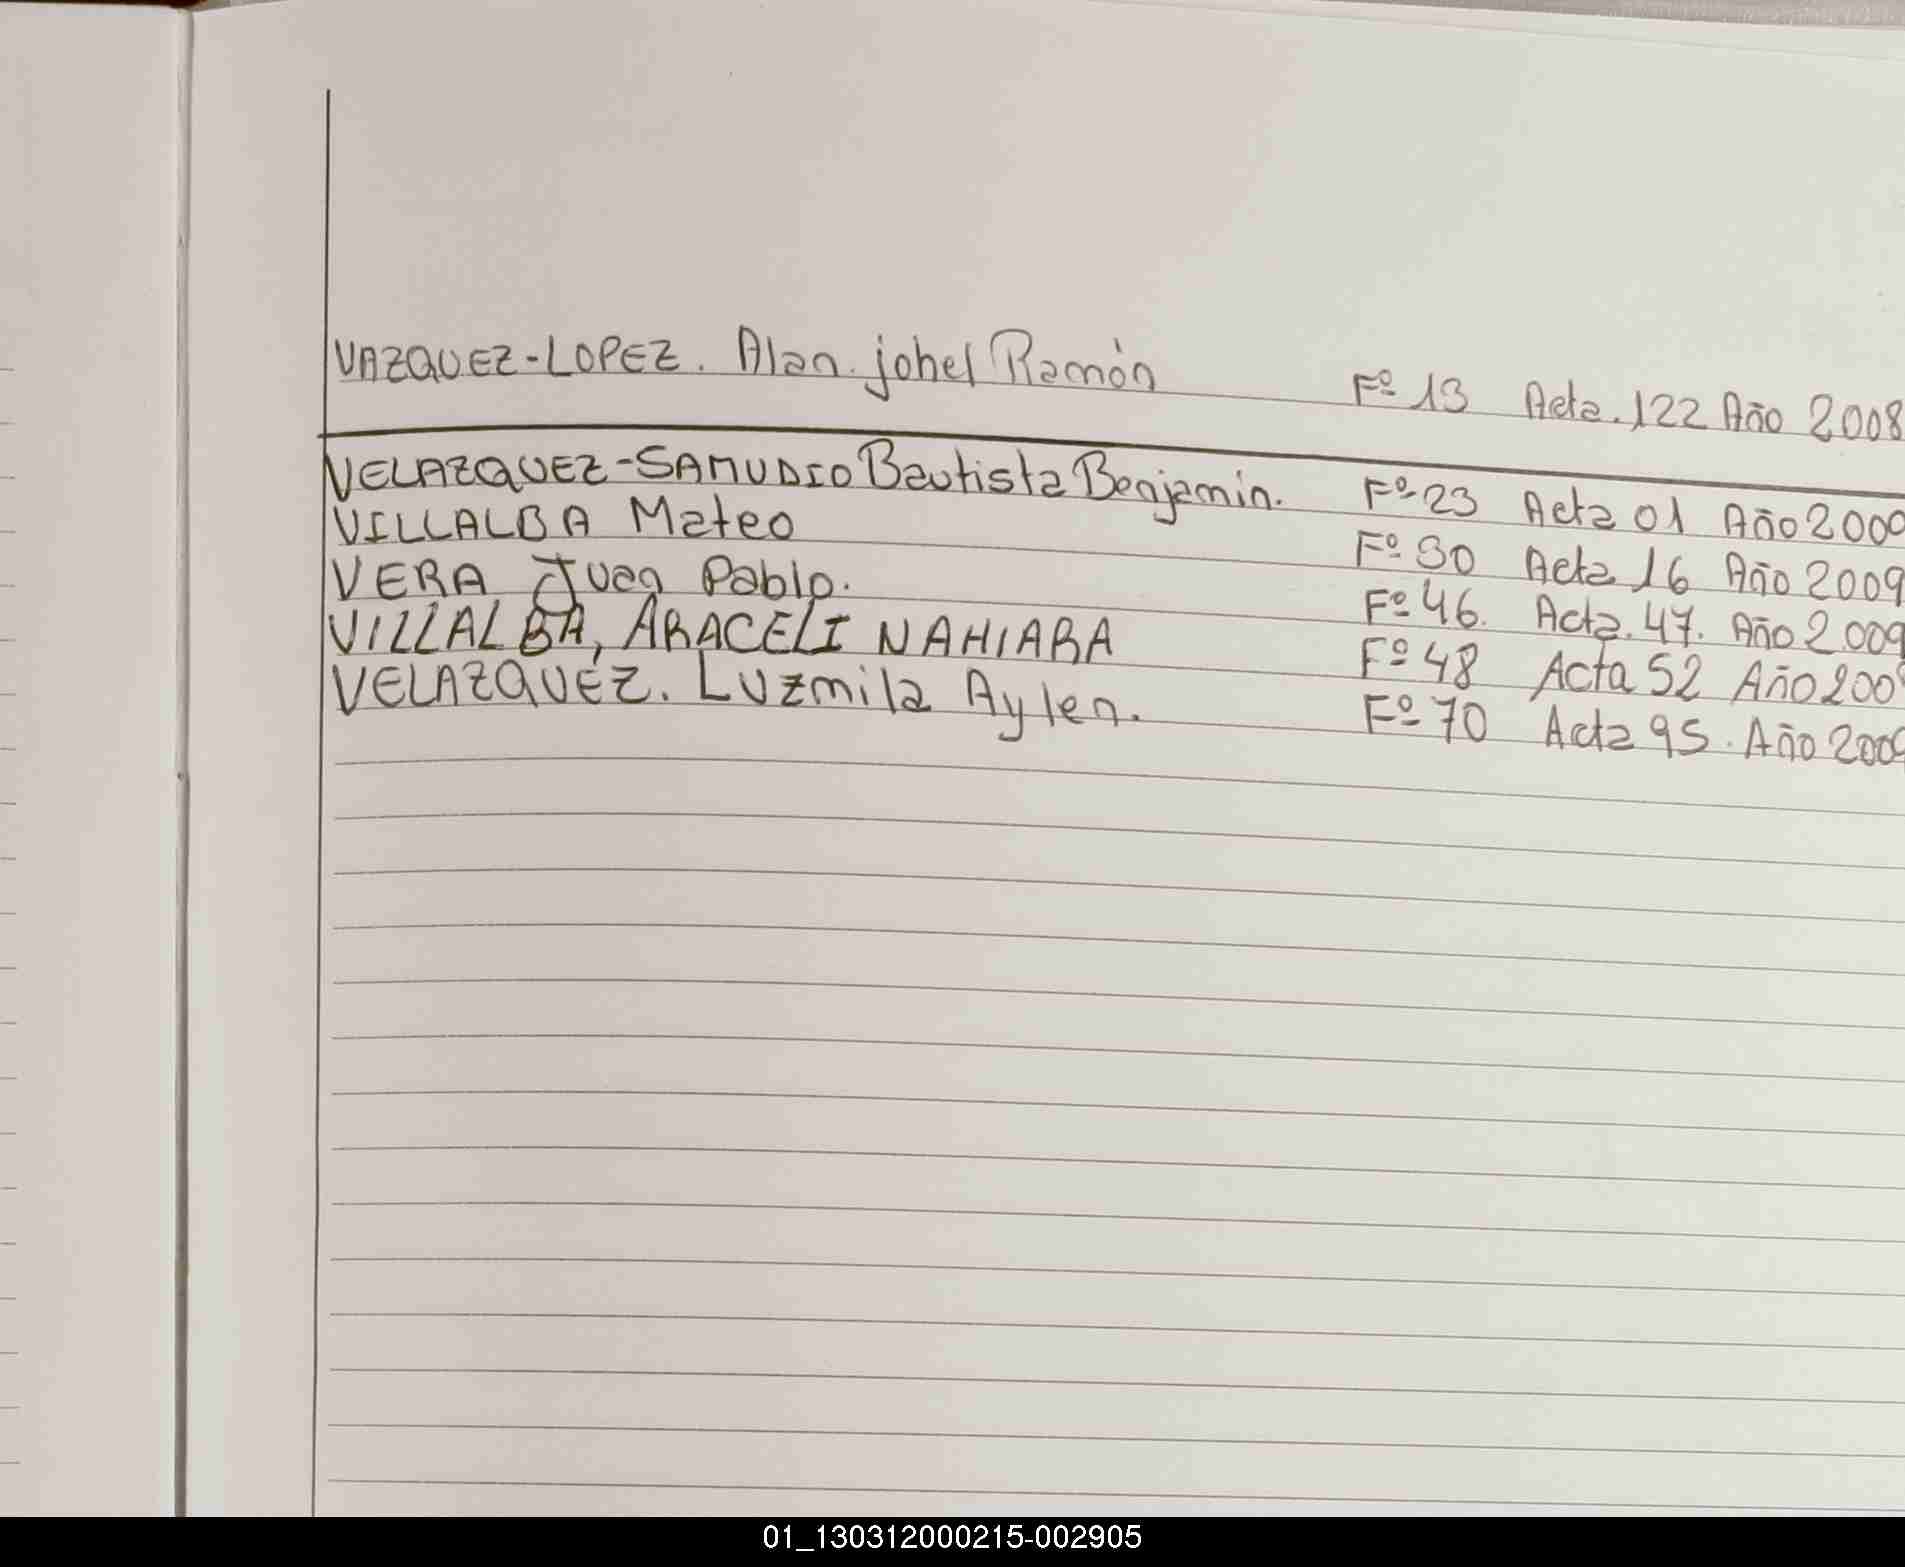 VAZQUEZ-LOPEZ. Alan. johel Ramón Fº 13 Acta. 122 Año 2008
VELAZQUEZ-SAMUDIO Bautista Benjamin. Fº 23 Acta 01 Año 2009
VILLALBA Mateo Fº 30 Acta 16 Año 2009
VERA Juan Pablo. Fº 46. Acta. 47. Año 2009
VILLALBA, ARACELI NAHIARA Fº 48 Acta 52 Año 200
VELAZQUEZ. Luzmila Aylen. Fº 70 Acta 95. Año 2009
01_130312000215-002905